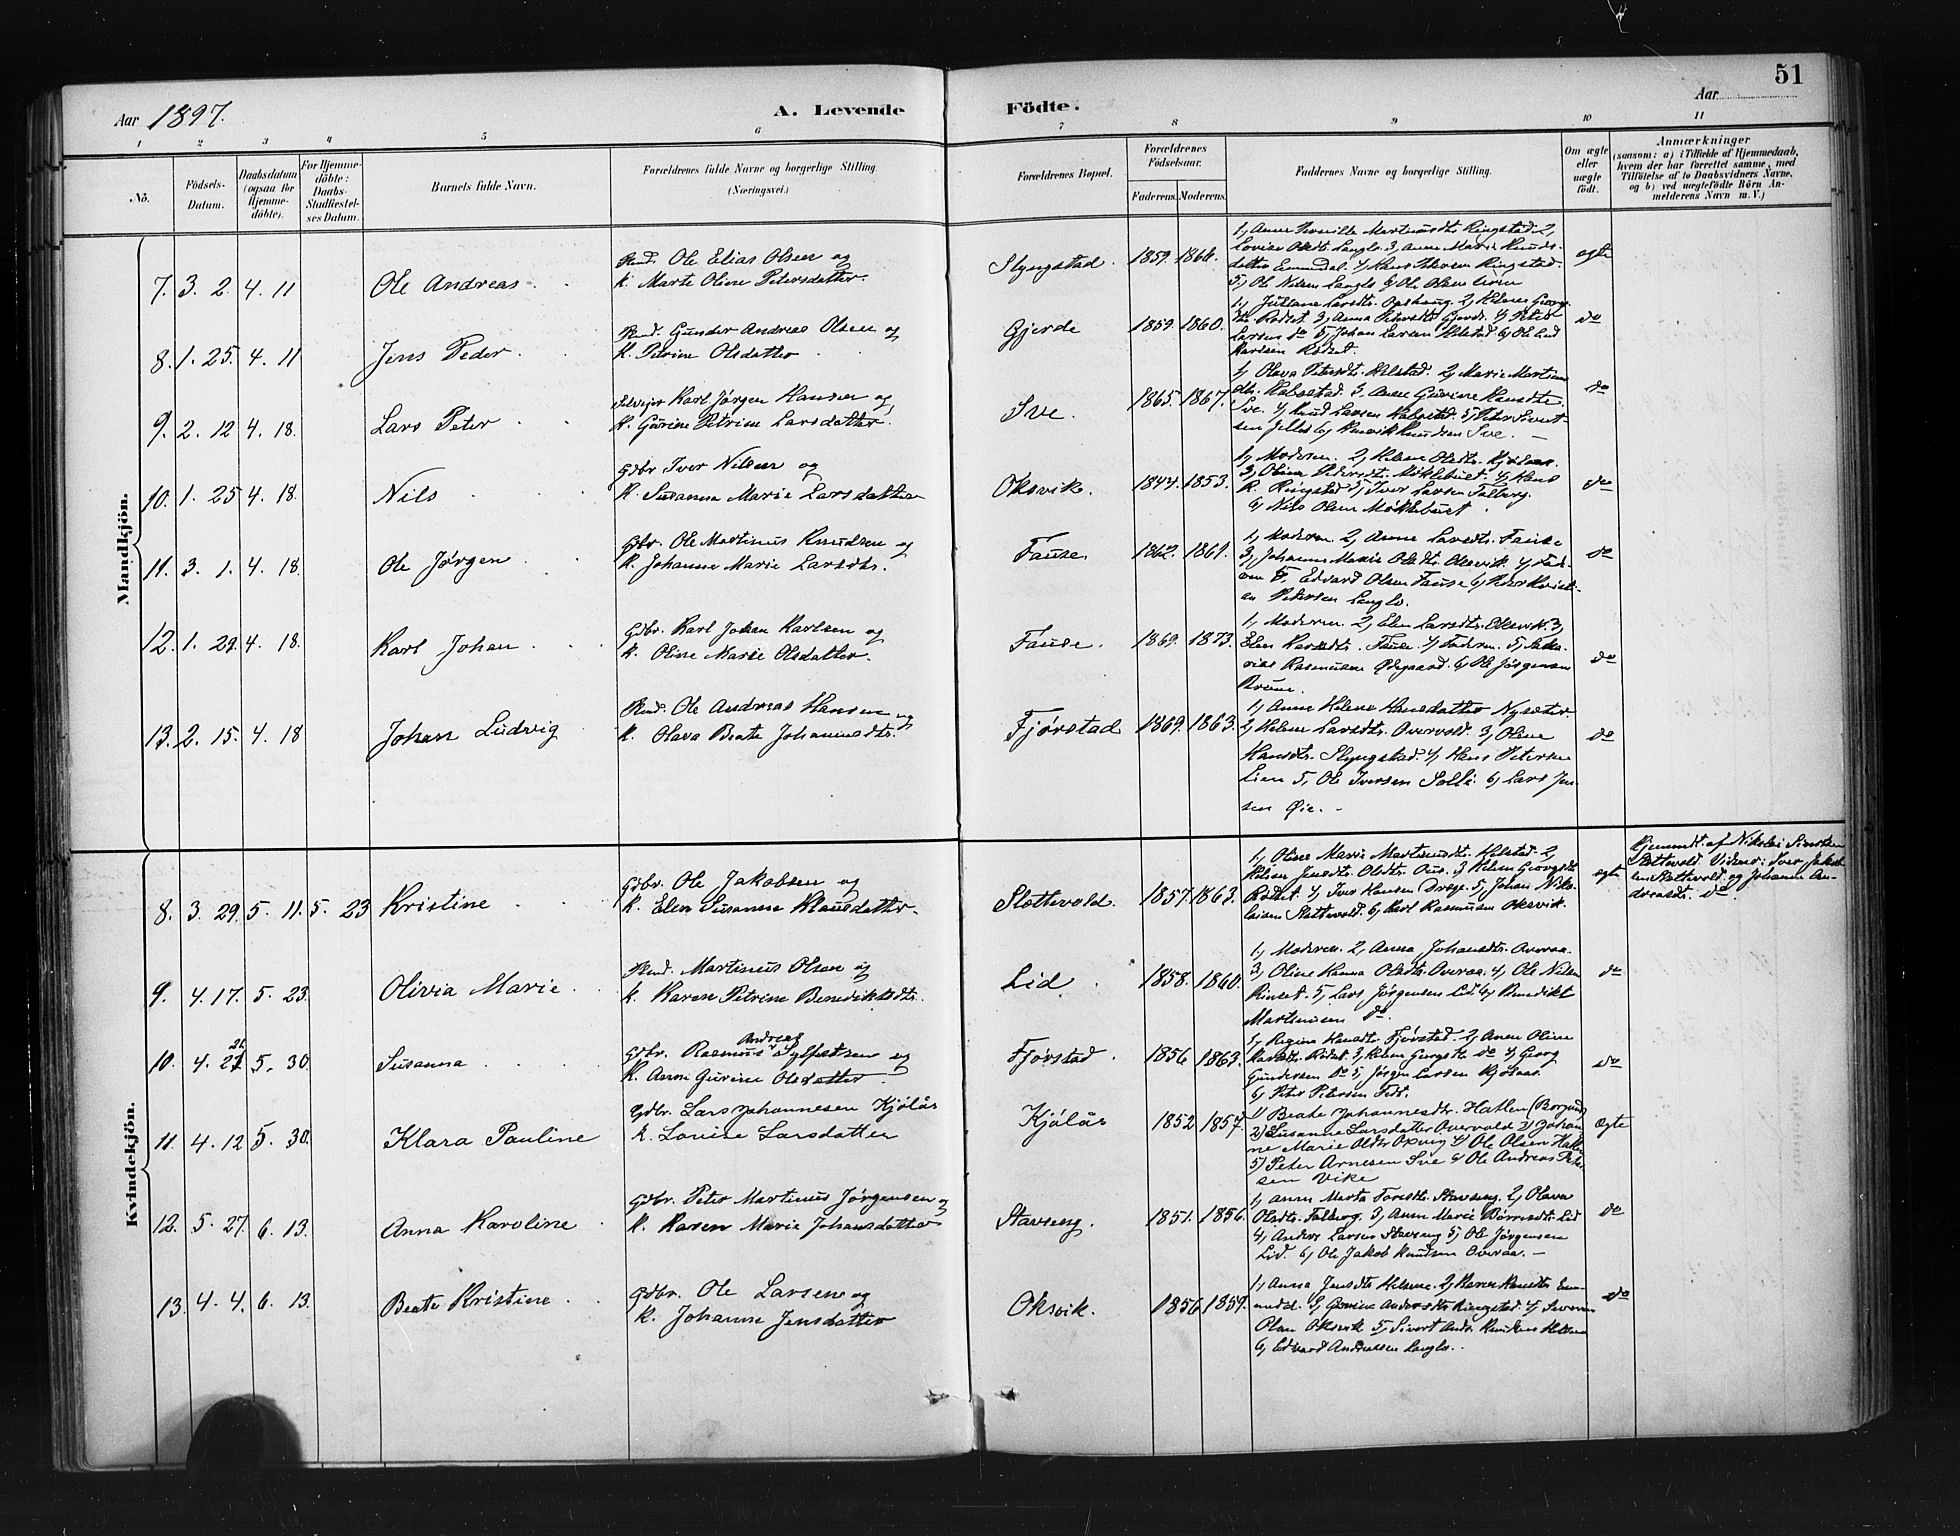 51
Aar 1897.
A. Levende
Födte.
Aar
1 2 3 4 5 6 7 8 9 10 11
No.
Födsels-
Datum.
Daabsdatum
(ogsaa for
Hjemme-
döbte).
For Hjemme-
döbte:
Daabs-
Stadfæstel-
ses Datum.
Barnets fulde Navn.
Forældrenes fulde Navne og borgerlige Stilling.
(Næringsvei.)
Forældrenes Bopæl.
Forældrenes
Födselsaar.
Faderens. Moderens.
Faddernes Navne og borgerlige Stilling.
Om ægte
eller
uægte
födt.
Anmærkninger
(saasom: a) i Tilfælde af Hjemmedaab,
hvem der har forrettet samme, med
Tilföielse af to Daabsvidners Navne,
og b) ved uægtefödte Börn An-
melderens Navn m. V.)
Mandkjön.
7. 3. 2. 4. 11 Ole Andreas
Ole Elias Olsen og
K. Marte Oline Petersdatter.
Slyngstad. 1859. 1864. egte
1, Anne Pernille Martinusdt. Ringstad 2,
Lovise Olsdt. Langlo. 3, Anne Marie Knuds-
datter Emmedal. 4, Hans Petersen Ringstad.
5, Ole Nilsen Langlo 6, Ole Olsen Lien
8. 1. 25. 4. 11 Jens Peder
Gunder Andreas Olsen og
K. Petrine Olsdatter
Gjerde 1859. 1860. do
1, Juliane Larsdt. Opshaug. 2, Helene Georg-
dtr. Rødset. 3, Anna Petersdt. Gjerde. 4, Peter
Larsen do 5, Johan Larsen Helstad 6, Ole
Karlsen Rødset.
9. 2. 12 4. 18. Lars Peter
Selveier Karl Jørgen Hansen og
K. Gurine Petrine Larsdatter.
Sve. 1865. 1867. do
1, Olava Petersdt. Helstad. 2, Marie Martinus
dtr. Habostad. 3, Anne Gurine Hansdtr.
Sve. 4, Knud Larsen Habostad. 5, Peter Sivert-
sen 6, Henrik Knudsen Sve.
10. 1. 25 4. 18. Nils
Gdbr Iver Nilsen og
K. Susanna Marie Larsdatter
Oksvik. 1844. 1853. do
1, Moderen. 2, Helene Olsdt. Kjølaas.
3, Oline Pedersdt. Møklebust. 4, Hans
K. Ringstad 5, Iver Larsen Falberg.
6, Nils Olsen Møklebust.
11. 3. 1. 4. 18. Ole Jørgen
Gdbr. Ole Martinus Knudsen og
K. Johanne Marie Larsdtr.
Fause. 1862. 1861. do
1, Moderen 2, Anne Larsdt. Fause
3, Johanne Marie Olsdtr. Oksvik. 4, Fad-
eren 5, Edvard Olsen Fause 6, Peter Kristi-
an Petersen Langlo.
12. 1. 29. 4. 18. Karl Johan
Gdbr. Karl Johan Karlsen og
K. Oline Marie Olsdatter.
Fause. 1869. 1873. do
1, Moderen. 2, Elen Larsdt. Oksvik. 3,
Elen Karlsdt. Fause. 4, Faderen. 5, Saka-
rias Rasmussen Ødegaard. 6, Ole Jørgensen
Brune.
13. 2. 15. 4. 18 Johan Ludvig
Ole Andreas Hansen og
K. Olava Beate Johannesdtr.
Fjørstad 1869. 1863. do
1, Anne Helene Hansdatter Nysæter.
2, Helene Larsdt. Overvold. 3, Oline
Hansdt. Slyngstad. 4, Hans Petersen
Lien 5, Ole Iversen Solli. 6, Lars Jen-
sen Øie.
Kvindekjön.
8. 3. 29. 5. 11. 5. 23 Kristine
Gdbr. Ole Jakobsen og
K. Elen Susanne Klausdatter.
Slottevold. 1857. 1863. egte
1, Oline Marie Martinusdt. Helstad. 2,
3, Helene Georgsdt.
Rødset. 4, Iver Hansen Drage. 5, Johan Niko-
laisen Slottevold. 6, Karl Rasmussen Oksvik.
Hjemmedt. af Nikolai Sivertsen
Slottevold. Vidner: Iver Jakob-
sen Slottevold og Johanne An-
dreasdt. do
9. 4. 17. 5. 23. Olivia Marie
Martinus Olsen og
K. Karen Petrine Benediktsdtr.
Lid 1858. 1860. do
1, Moderen. 2, Anna Johansdt. Overaa.
3, Oline Hanna Olsdt. Overaa. 4, Ole Nilsen
Rinset. 5, Lars Jørgensen Lid. 6, Benedikt
Martinusen do
10. 4. 21 5. 30. Susanna
Andreas
Gdbr. Rasmus Sylfestsen og
K. Anne Gurine Olsdatter
Fjørstad. 1856 1863. do
1, Regine Hansdt. Fjørstad. 2, Anne Oline
Karlsdt. Rødset. 3, Helene Georgsdt. do 4, Georg
Gundersen do 5, Jørgen Larsen Kjølaas.
6, Peter Petersen
11. 4. 12 5. 30. Klara Pauline
Gdbr. Lars Johannesen Kjølås
K. Lovise Larsdatter
Kjølås 1852 1857. Ægte
1) Beate Johannesdtr. Hatlen (Borgund)
2) Susanne Larsdatter Overvold 3) Johan-
ne Marie Olsdtr Oxvig 4) Ole Olsen Hatlen
5) Peter Arnesen Sve 6 Ole Andreas Peter-
sen Vike
12. 5. 27. 6. 13. Anna Karoline
Gdbr. Peter Martinus Jørgensen og
K. Karen Marie Johansdatter
Stavseng. 1851. 1856. do
1, Anne Marta Toresdt. Stavseng. 2, Olava
Olsdt. Falberg. 3, Anne Marie Børresdt. Lid
4, Anders Larsen Stavseng 5, Ole Jørgensen
Lid. 6, Ole Jakob Knudsen Overaa.
13. 4. 4. 6. 13. Beate Kristine
Gdbr. Ole Larsen og
K. Johanne Jensdatter
Oksvik. 1856 1859. do
1, Anna Jensdt. 2, Karen Knudsdt. Em-
medal. 3, Gurine Andersdt. Ringstad. 4, Severin
Olsen Oksvik 5, Sivert Andr. Knudsen
6, Edvard Andreassen Langlo.